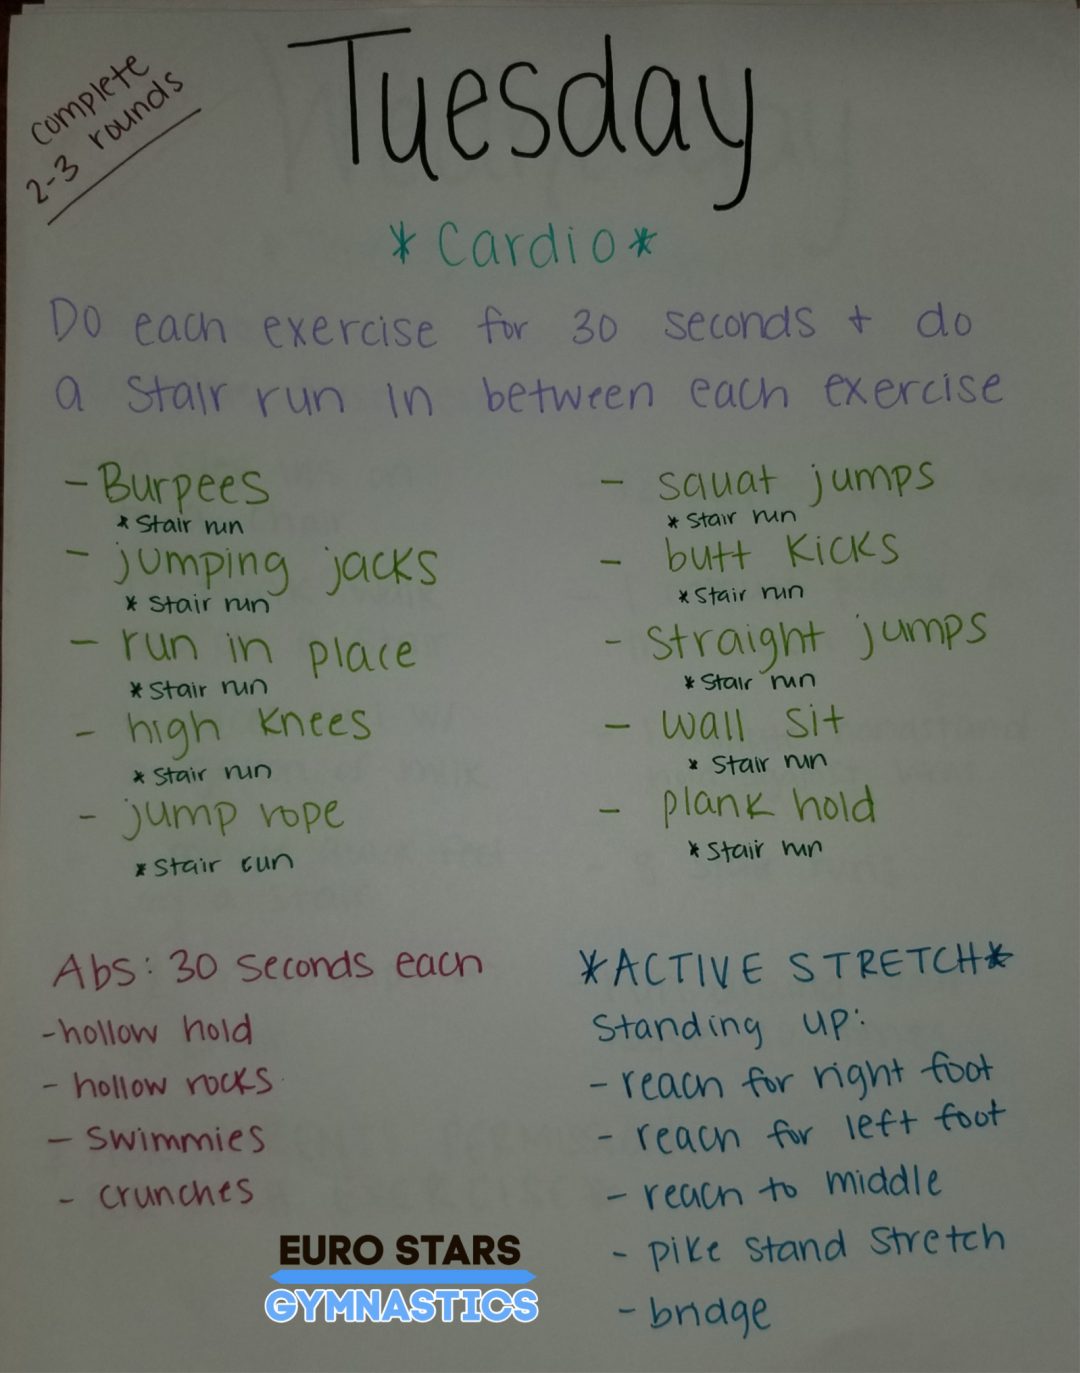 complete
2-3 rounds
Tuesday
*Cardio*
Do each exercise for 30 seconds + do
a stair run in between each exercise
- Burpees
* stair run
- jumping jacks
* stair run
- run in place
* stair run
- high knees
* stair run
- jump rope
* stair run
- squat jumps
* stair run
- butt kicks
* stair run
- straight jumps
* stair run
- wall sit
* stair run
- plank hold
* stair run
Abs: 30 seconds each
- hollow hold
- hollow rocks
- swimmies
- crunches
*ACTIVE STRETCH*
Standing up:
- reach for right foot
- reach for left foot
- reach to middle
- pike stand stretch
- bridge
EURO STARS
GYMNASTICS